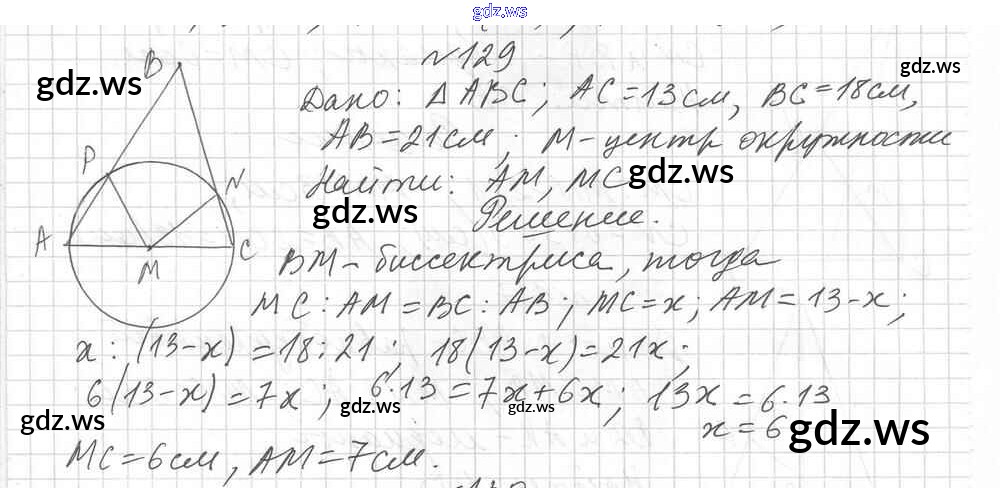 gdz.ws
№129
gdz.ws
gdz.ws
Дано: Δ ABC; AC=13см, BC=18см,
AB=21см; M-центр окружности
gdz.ws
Найти: AM, MC
gdz.ws
Решение.
BM-биссектриса, тогда
MC:AM=BC:AB; MC=x; AM=13-x;
x:(13-x)=18:21; 18(13-x)=21x;
6(13-x)=7x; 6·13=7x+6x; 13x=6·13
gdz.ws
gdz.ws
gdz.ws
x=6
gdz.ws
MC=6см, AM=7см.
B
P
N
A
M
C